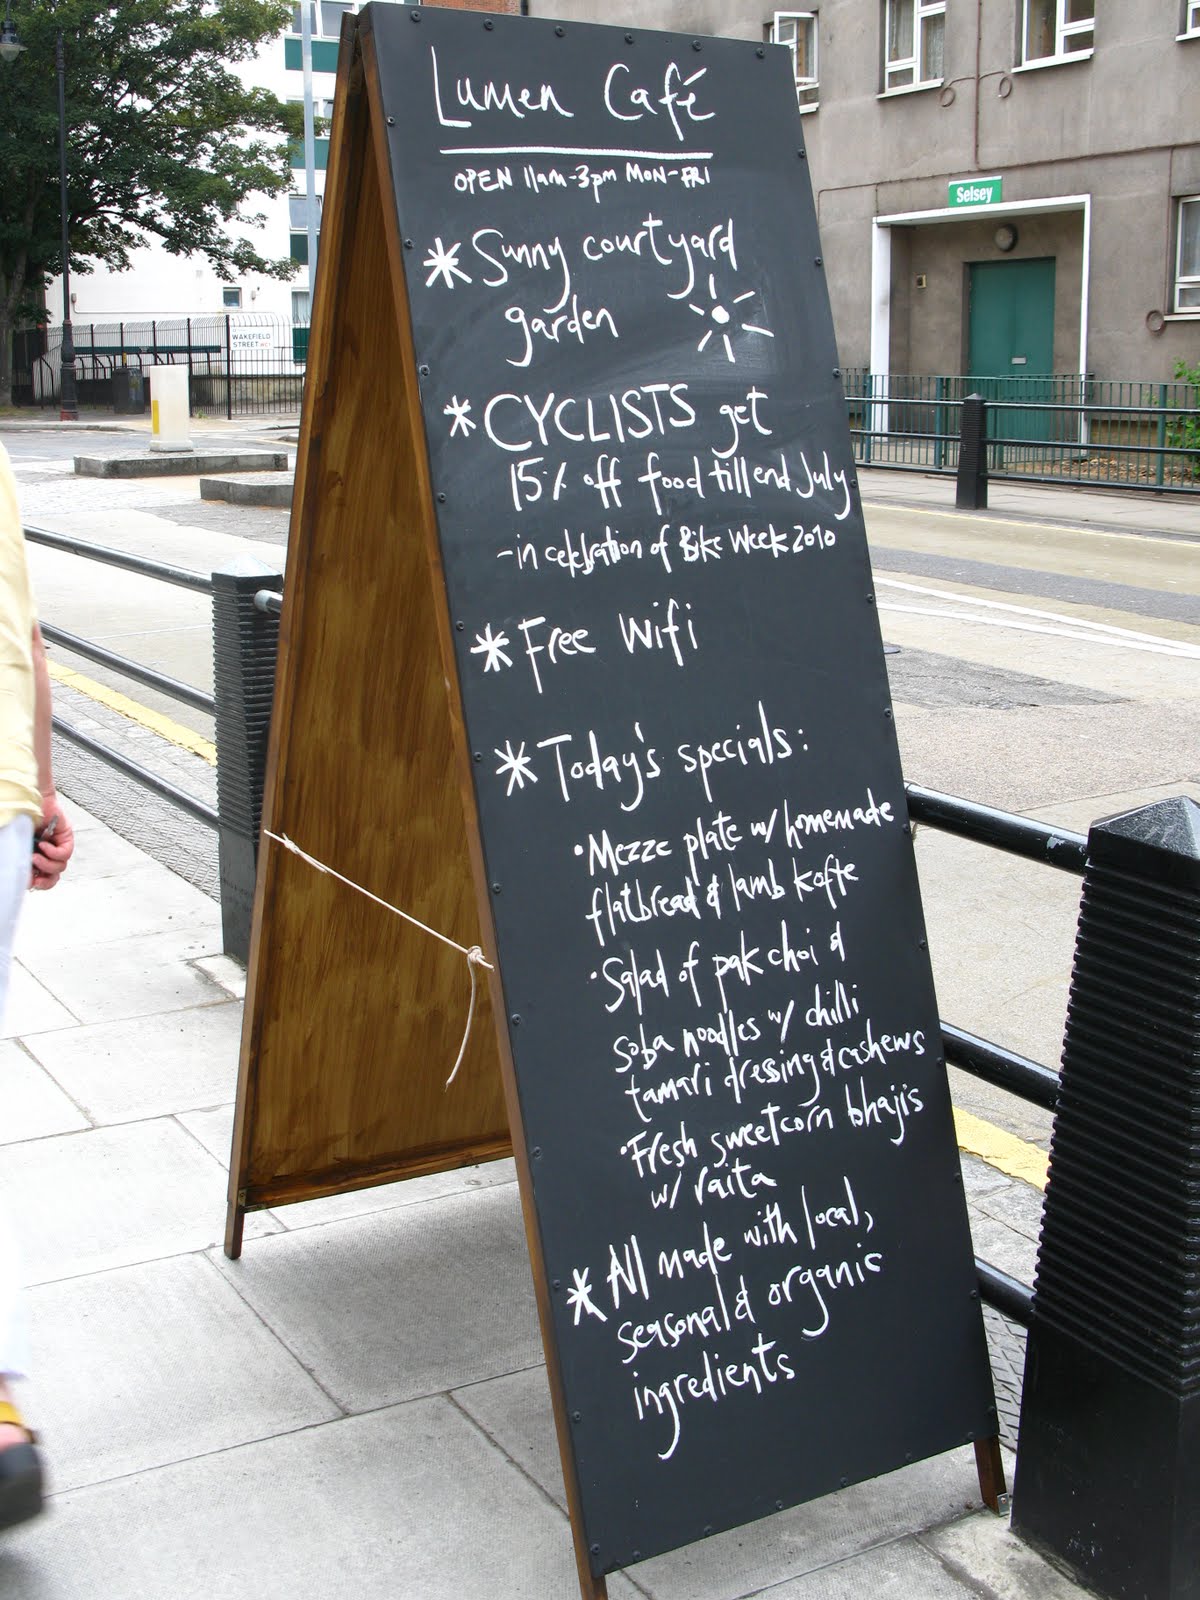 Lumen Café
OPEN 11am-3pm MON-FRI
* Sunny courtyard
garden
* CYCLISTS get
15% off food till end July
- in celebration of Bike Week 2010
* Free Wifi
* Today's specials:
• Mezze plate w/ homemade
flatbread & lamb kofte
• Salad of pak choi &
soba noodles w/ chilli
tamari dressing & cashews
• Fresh sweetcorn bhajis
w/ raita
* All made with local,
seasonal & organic
ingredients
Selsey
WAKEFIELD
STREET WC1